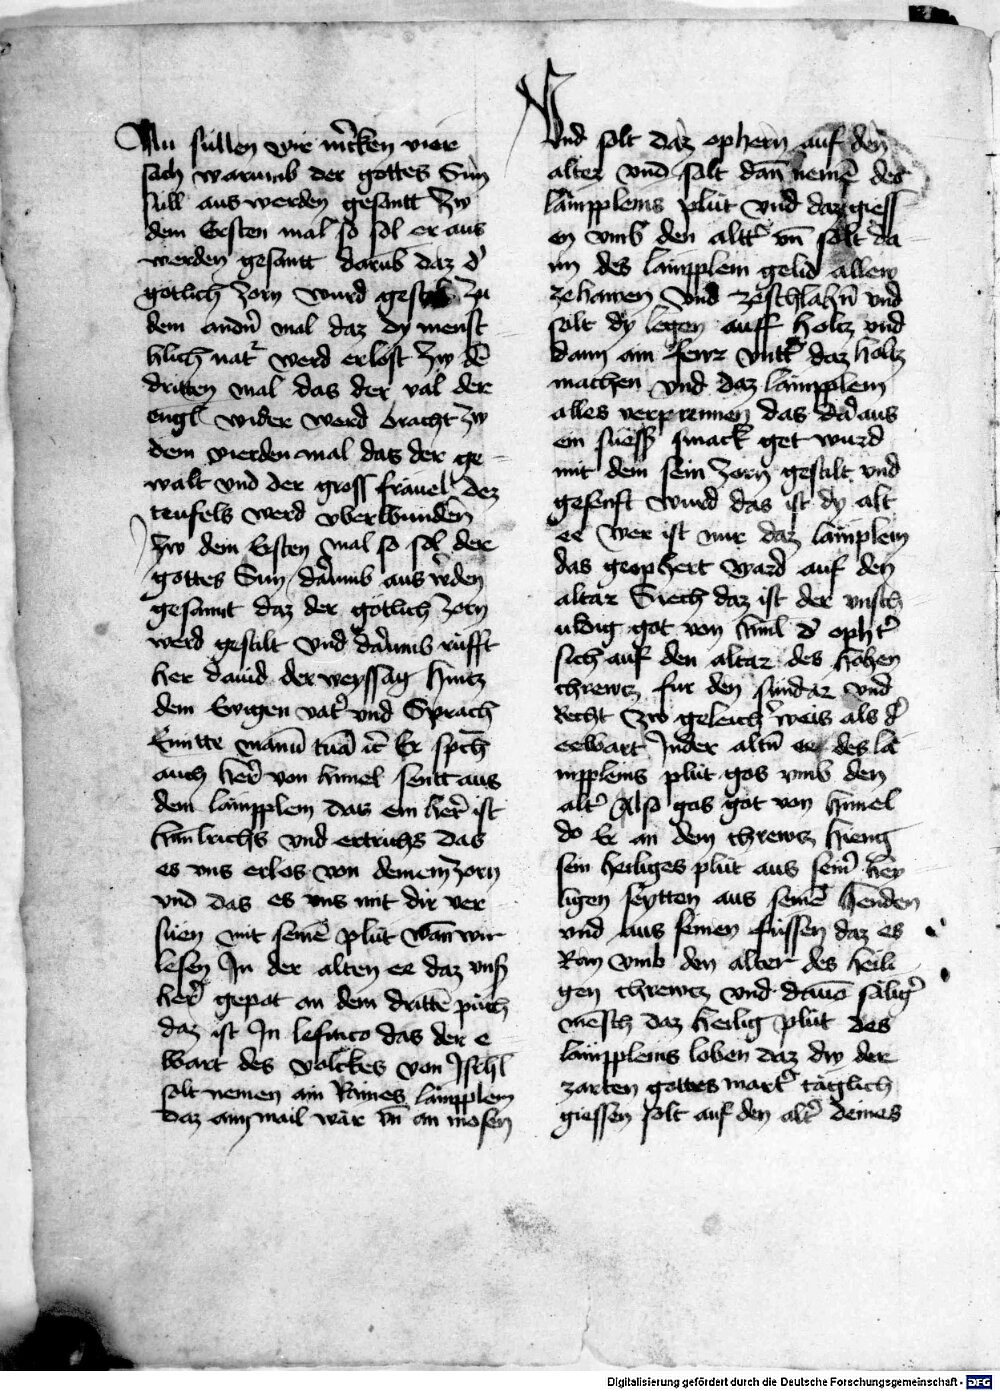 Nu sullen wir mercken viere
sach warumb der gottes Sun
sull aus werden gesantt Zw
dem Ersten mal so sol er aus
werden gesantt darūb daz d'
gotlich Zorn wurd gestilt Zu
dem andn̄ mal daz dy mensc
hlich nat' werd erlost Zw dē
dritten mal das der val der
engl wider werd bracht Zw
dem vierden mal das der ge
walt vnd der gross fräuel dez
teufels werd vberwunden
Zw dem Ersten mal so sol der
gottes Sun darumb aus w'den
gesannt daz der götlich Zorn
werd gestilt Vnd darumb rüfft
her dauid der weyssag hintz
dem Ewigen vat' vnd Sprach
Emitte manū tuā ic̄ Er spch̄
auch her' von himel sentt aus
dem lämpplem daz ein her' ist
himlrichs vnd ertrichs das
es vns erlos von deinem Zorn
vnd das es vns mit dir ver
süen mit seinē plüt wan wir
lesen In der alten ee daz vnſ
her' gepot an dem drittē püch
daz ist In lefitico das der e
wart des volckes von Jsrhl
solt nemen ain Raines lämpplem
daz ain mail wär vn̄ an mosen
Vnd solt daz ophern auf den
alter vnd salt dan̄ nemē des
lämpplems plüt vnd daz giess
en vmb den altt' vn̄ solt da
nn des lämpplem gelid allew
zehawen Vnd zeschlahn̄ vnd
solt dy legen auff holtz vnd
dann ain fewr vntt' daz holtz
machen vnd daz lämpplem
alles verprennen das daraus
ein suess smack get wurd
mit dem sein Zorn gestilt vnd
gesenft wurd das ist dy alt
ee wer ist nur daz lämplem
das geophert ward auf den
altar Siech daz ist der vnsch
uldig got von himl d' opht'
sich auf den altar des hohen
chrewtz fur den sundar vnd
Recht Zw geleich' weis als d'
eewart Inder altn̄ ee des lä
mpplems plüt gos vmb den
alt' Also gos got von himel
do Er an dem chrewtz hieng
sein heiliges plüt aus sein' hey
ligen seytten aus seinē henden
vnd aus seinen füssen daz es
Ran vmb den alter des heili
gen chrewtz vnd dauo sälig'
mensch daz heilig plüt des
lämpplems loben daz dw der
zarten gottes mart' täglich
giessen solt auf den alt' deines
Digitalisierung gefördert durch die Deutsche Forschungsgemeinschaft - DFG